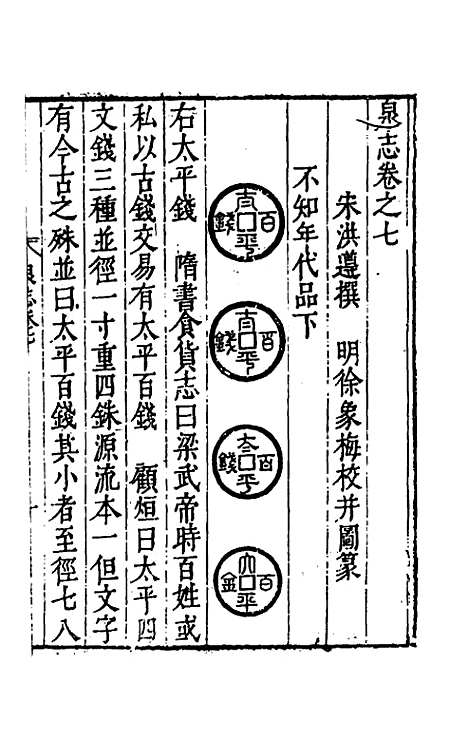 泉志卷之七
宋洪遵撰　明徐象梅校并圖篆
不知年代品下
太平百錢
太平百錢
太平百錢
大平百金
右太平錢　隋書食貨志曰梁武帝時百姓或
私以古錢交易有太平百錢　顧烜曰太平四
文錢三種並徑一寸重四銖源流本一但文字
有今古之殊並曰太平百錢其小者至徑七八